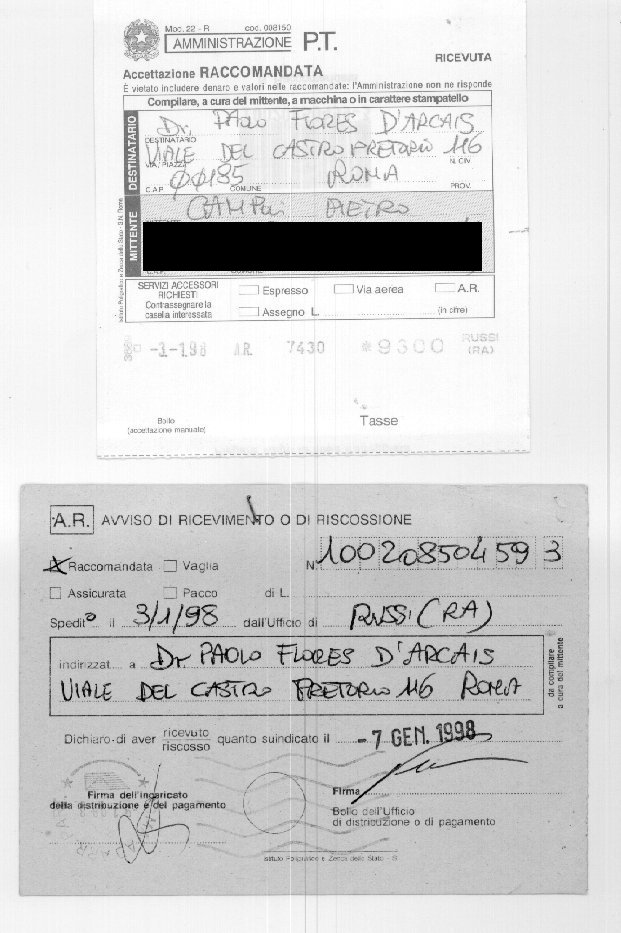 Mod. 22 - R cod. 008150
AMMINISTRAZIONE P.T.
RICEVUTA
Accettazione RACCOMANDATA
È vietato includere denaro e valori nelle raccomandate: l'Amministrazione non ne risponde
Compilare, a cura del mittente, a macchina o in carattere stampatello
DESTINATARIO
Dr. PAOLO FLORES D'ARCAIS
DESTINATARIO
VIALE DEL CASTRO PRETORIO 116
VIA, PIAZZA N. CIV.
00185 ROMA
C.A.P. COMUNE PROV.
MITTENTE
PIETRO
SERVIZI ACCESSORI RICHIESTI
Contrassegnare la casella interessata
Espresso Via aerea A.R.
Assegno L. (in cifre)
-3-1-98 A.R. 7430 *9300 RUSSI (RA)
Bollo
(accettazione manuale)
Tasse
A.R. AVVISO DI RICEVIMENTO O DI RISCOSSIONE
Raccomandata Vaglia N. 10020850459 3
Assicurata Pacco di L.
Spedito il 3/1/98 dall'Ufficio di RUSSI (RA)
indirizzat a Dr. PAOLO FLORES D'ARCAIS
VIALE DEL CASTRO PRETORIO 116 ROMA
da compilare a cura del mittente
Dichiaro di aver ricevuto riscosso quanto suindicato il -7 GEN. 1998
Firma dell'incaricato
della distribuzione e del pagamento
Firma
Bollo dell'Ufficio
di distribuzione o di pagamento
Istituto Poligrafico e Zecca dello Stato - S